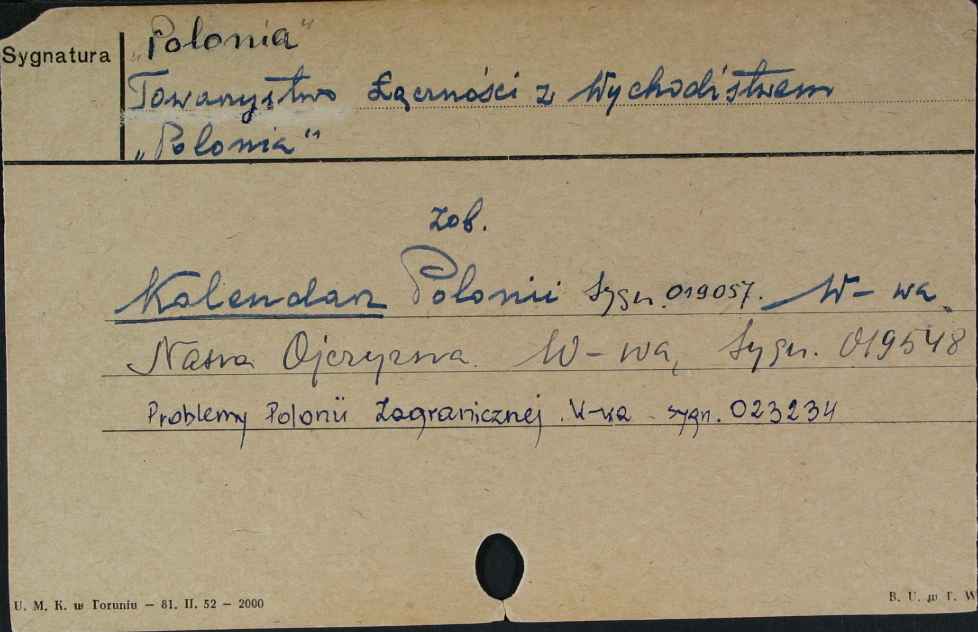 „Polonia"
Sygnatura
Towarzystwo Łączności z Wychodźstwem
„Polonia"
zob.
Kalendarz Polonii Sygn. 019057. W-wa.
Nasza Ojczyzna. W-wa, Sygn. 019548
Problemy Polonii Zagranicznej. W-wa - sygn. 023234
U. M. K. w Toruniu – 81. II. 52 – 2000
B. U. w T. W